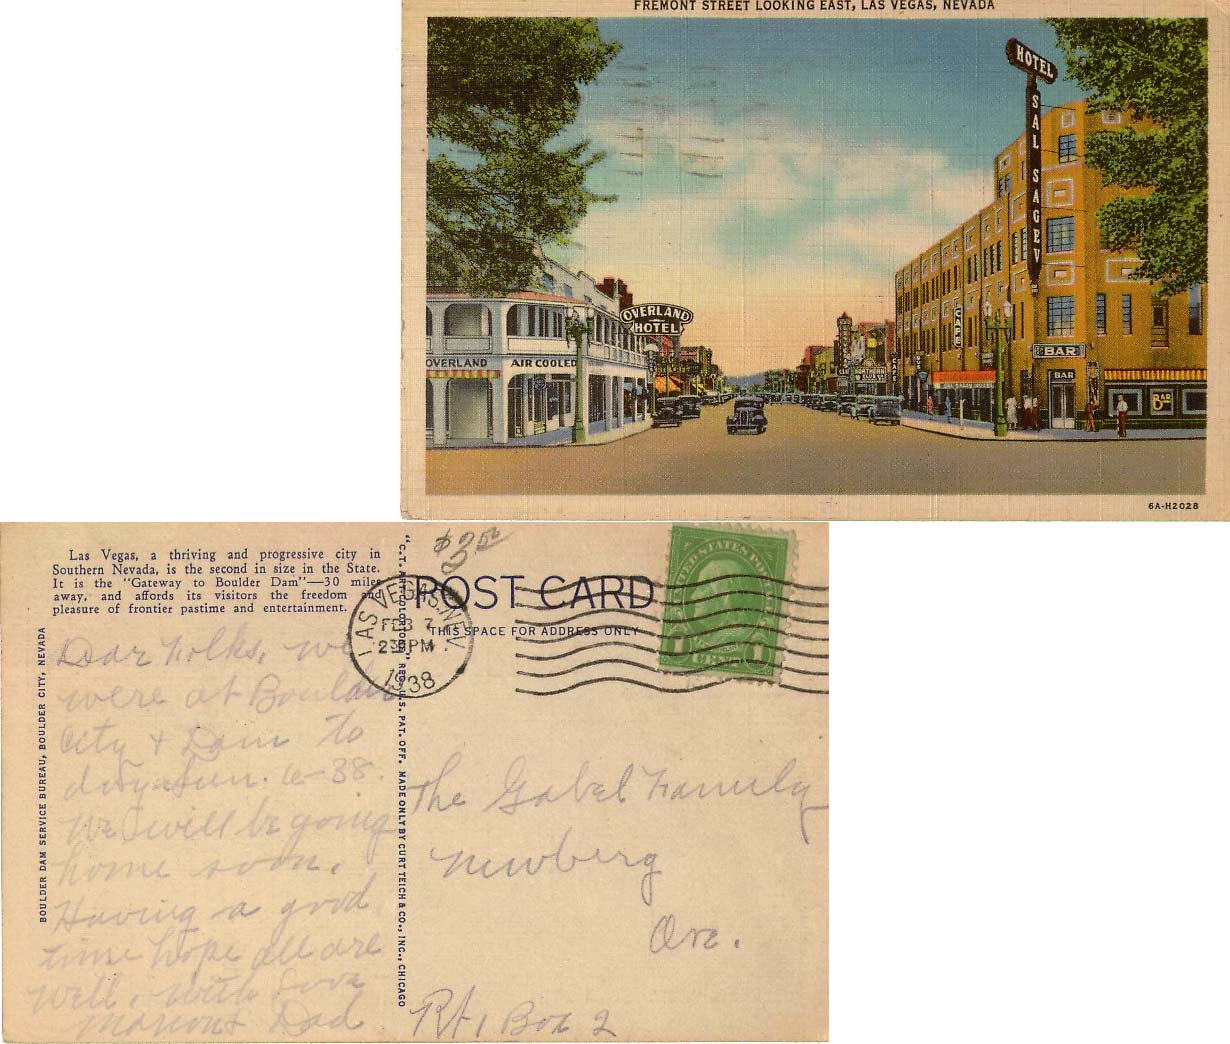 FREMONT STREET LOOKING EAST, LAS VEGAS, NEVADA
HOTEL
SAL SAGEV
OVERLAND
HOTEL
OVERLAND
AIR COOLED
CAFE
NORTHERN
CLUB
CAFE
BAR
BAR
BAR
6A-H2028
$3.50
Las Vegas, a thriving and progressive city in
Southern Nevada, is the second in size in the State.
It is the "Gateway to Boulder Dam"—30 miles
away, and affords its visitors the freedom and
pleasure of frontier pastime and entertainment.
BOULDER DAM SERVICE BUREAU, BOULDER CITY, NEVADA
Dear Folks, we
were at Boulder
City & Dam to
day 6-38.
We will be going
home soon.
Having a good
time hope all are
well. with Love
Marion & Dad
"C.T. ART-COLORTONE" REG. U.S. PAT. OFF. MADE ONLY BY CURT TEICH & CO., INC., CHICAGO
POST CARD
THIS SPACE FOR ADDRESS ONLY
LAS VEGAS, NEV.
FEB 7
PM
1938
UNITED STATES POSTAGE
1 CENT 1
The Gabel Family
Newberg
Ore.
Rt 1 Box 2